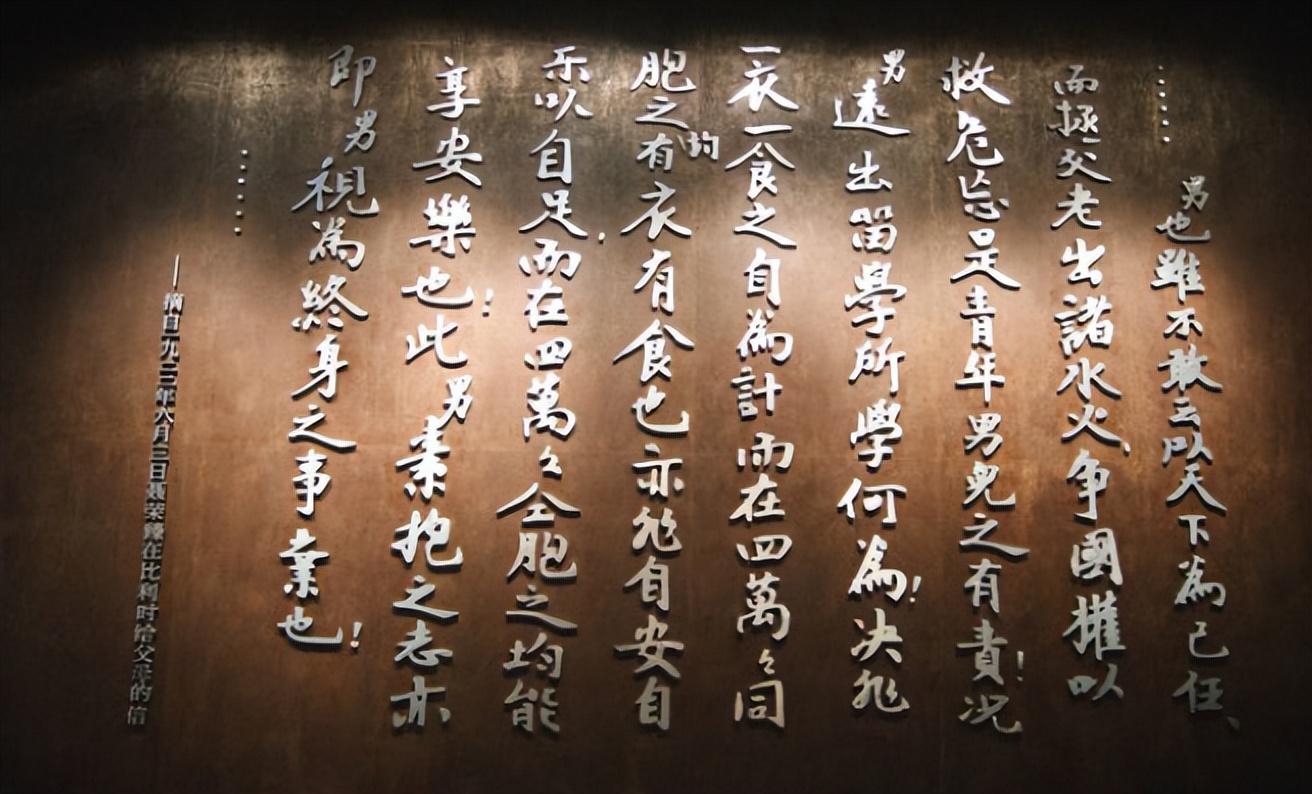 ……男也雖不敢云以天下為己任、
而拯父老出諸水火、争國權以
救危忘是青年男兒之有責！况
男遠出留學所學何為！决非
一衣一食之自為計而在四萬々同
胞之均有衣有食也亦非自安自
乐以自足、而在四萬々仝胞之均能
享安樂也！此男素抱之志亦
即男視為終身之事業也！
……
——摘自一九二三年六月三日聂荣臻在比利时给父母的信